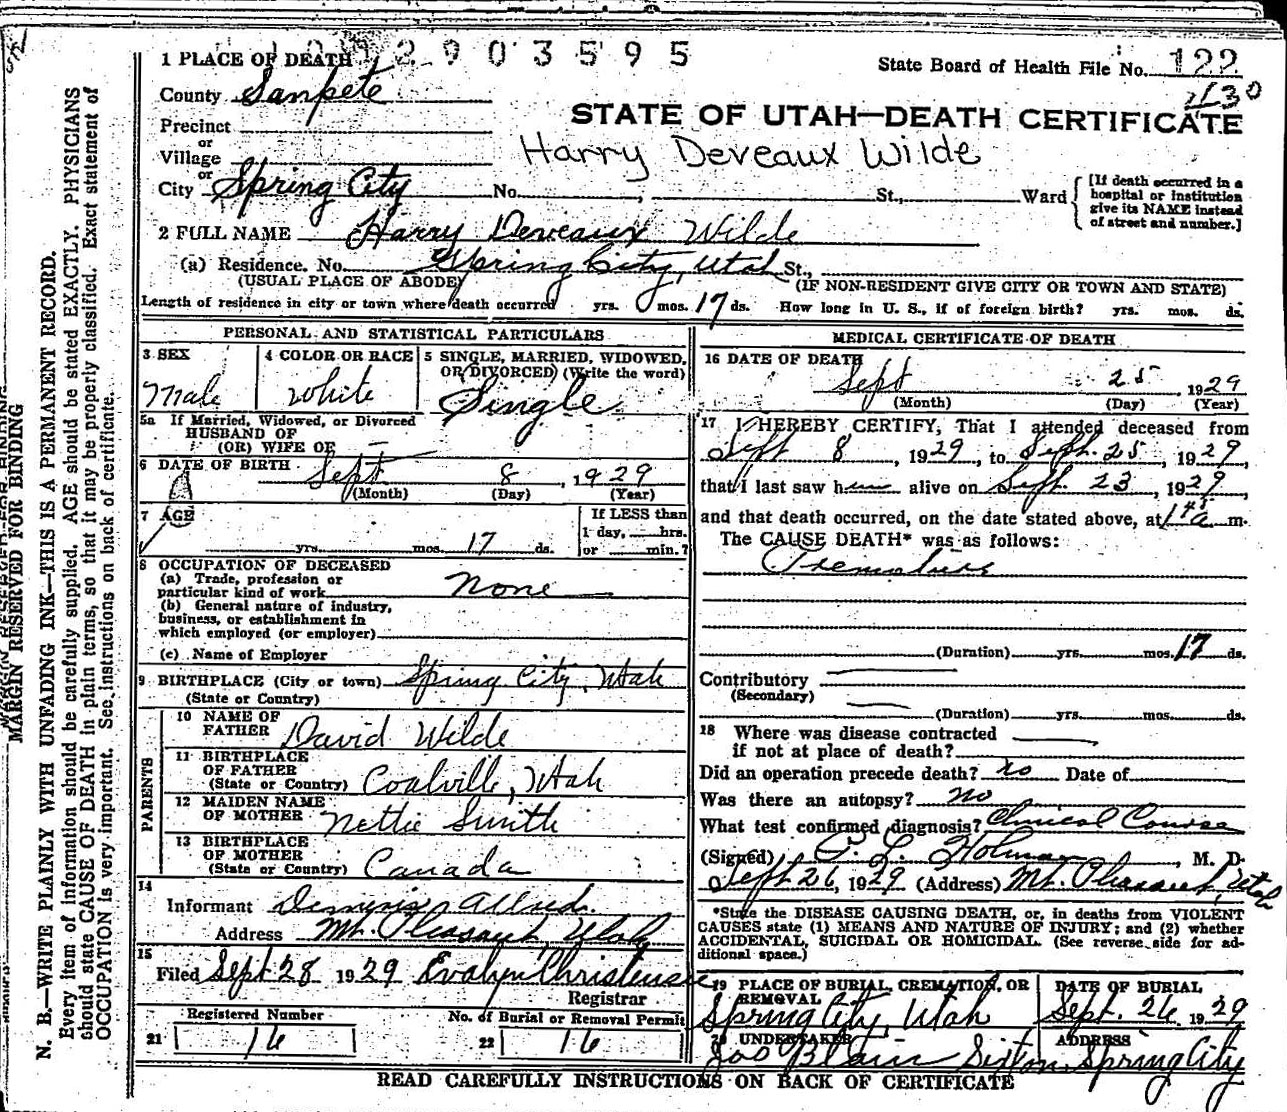 2 9 0 3 5 9 5
1 PLACE OF DEATH
State Board of Health File No. 122
County Sanpete
130
STATE OF UTAH—DEATH CERTIFICATE
Precinct
or
Village
Harry Deveaux Wilde
or
City Spring City No. , St., Ward
[If death occurred in a
hospital or institution
give its NAME instead
of street and number.]
2 FULL NAME Harry Deveaux Wilde
(a) Residence. No. Spring City, Utah St.,
(USUAL PLACE OF ABODE) (IF NON-RESIDENT GIVE CITY OR TOWN AND STATE)
Length of residence in city or town where death occurred yrs. mos. 17 ds. How long in U. S., if of foreign birth? yrs. mos. ds.
PERSONAL AND STATISTICAL PARTICULARS
3 SEX
Male
4 COLOR OR RACE
White
5 SINGLE, MARRIED, WIDOWED,
OR DIVORCED (Write the word)
Single
5a If Married, Widowed, or Divorced
HUSBAND OF
(OR) WIFE OF —
6 DATE OF BIRTH Sept 8, 1929
(Month) (Day) (Year)
7 AGE
yrs. mos. 17 ds.
If LESS than
1 day, hrs.
or min.?
8 OCCUPATION OF DECEASED
(a) Trade, profession or
particular kind of work None
(b) General nature of industry,
business, or establishment in
which employed (or employer)
(c) Name of Employer
9 BIRTHPLACE (City or town) Spring City, Utah
(State or Country)
PARENTS
10 NAME OF
FATHER David Wilde
11 BIRTHPLACE
OF FATHER
(State or Country) Coalville, Utah
12 MAIDEN NAME
OF MOTHER Nettie Smith
13 BIRTHPLACE
OF MOTHER
(State or Country) Canada
14
Informant Allred.
Address Mt. Pleasant, Utah
15
Filed Sept 28 1929 Evalyn Christensen
Registrar
Registered Number
21 16
No. of Burial or Removal Permit
22 16
MEDICAL CERTIFICATE OF DEATH
16 DATE OF DEATH
Sept 25 1929
(Month) (Day) (Year)
17 I HEREBY CERTIFY, That I attended deceased from
Sept 8, 1929, to Sept. 25, 1929,
that I last saw him alive on Sept. 23, 1929,
and that death occurred, on the date stated above, at 1 45 a m.
The CAUSE DEATH* was as follows:
Premature
(Duration) yrs. mos. 17 ds.
Contributory
(Secondary)
(Duration) yrs. mos. ds.
18 Where was disease contracted
if not at place of death?
Did an operation precede death? no Date of
Was there an autopsy? no
What test confirmed diagnosis? Clinical Course
(Signed) P. L. Holman, M. D.
Sept 26, 1929 (Address) Mt. Pleasant, Utah
*State the DISEASE CAUSING DEATH, or, in deaths from VIOLENT
CAUSES state (1) MEANS AND NATURE OF INJURY; and (2) whether
ACCIDENTAL, SUICIDAL OR HOMICIDAL. (See reverse side for ad-
ditional space.)
19 PLACE OF BURIAL, CREMATION, OR
REMOVAL
Spring City, Utah
DATE OF BURIAL
Sept. 26 1929
20 UNDERTAKER
Jas Blain Sixton
ADDRESS
Spring City
READ CAREFULLY INSTRUCTIONS ON BACK OF CERTIFICATE
MARGIN RESERVED FOR BINDING
N. B.—WRITE PLAINLY WITH UNFADING INK—THIS IS A PERMANENT RECORD.
Every item of information should be carefully supplied. AGE should be stated EXACTLY. PHYSICIANS
should state CAUSE OF DEATH in plain terms, so that it may be properly classified. Exact statement of
OCCUPATION is very important. See instructions on back of certificate.